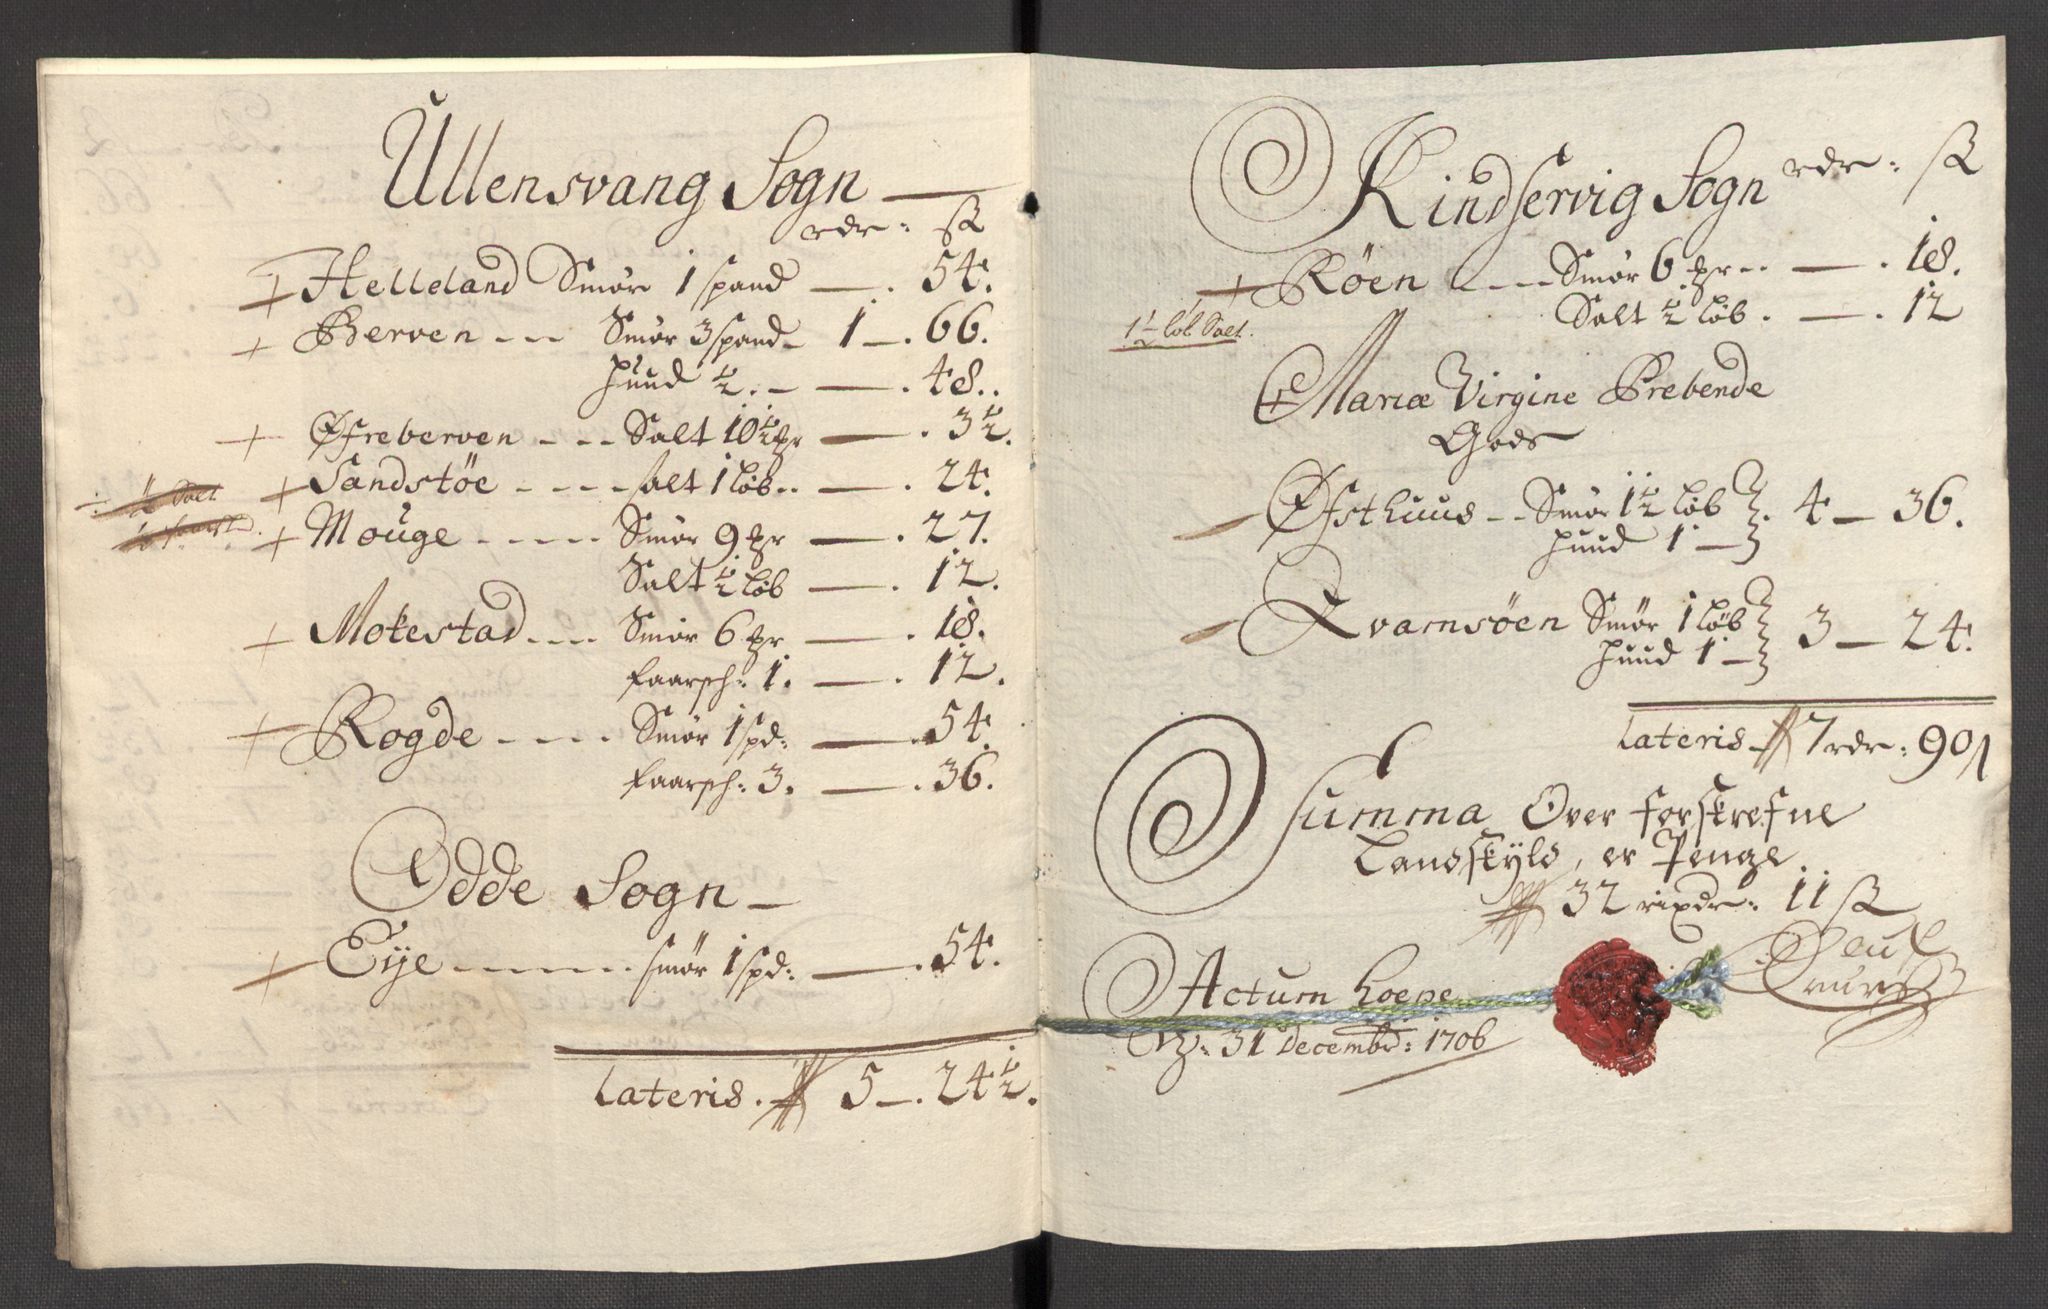 Ullensvang Sogn
rdr: ß
+ Helleland Smør 1 spand — . 54.
+ Berven - - - Smør 3 spand - 1 — . 66.
huud ½ . - — . 48..
+ Øfreberven - - - Salt 10½ pr — . 3½.
½ Salt + Sandstöe - - - - Salt 1 löb.. — . 24.
+ Mouge - - - - - Smør 9 pr — . 27.
Salt ½ löb — . 12.
+ Mokestad - - - Smør 6 pr — . 18.
faarsch: 1. — . 12.
+ Rogde - - - - Smør 1 spd: — . 54.
faarsch: 3. — . 36.
Odde Sogn —
+ Eije - - - - - - - smör 1 spd: — . 54.
Lateris. 5 — . 24½.
Kindservig Sogn rdr: ß
+ Röen - - - Smør 6 pr - - — . 18.
1½ löb Salt.
Salt ½ löb . — . 12
Mariæ Virgine Prebende
Gods
Øfsthuus - - Smør 1½ löb . 4 — 36.
huud 1 —
Qvamsöen Smør 1 löb 3 — 24.
huud 1 —
Lateris 7 rdr: 90
Summa Over forskrefne
Landskyld, er Penge.
32 rixdr: 11 ß
Actum Hoepe
31 Decembr: 1706